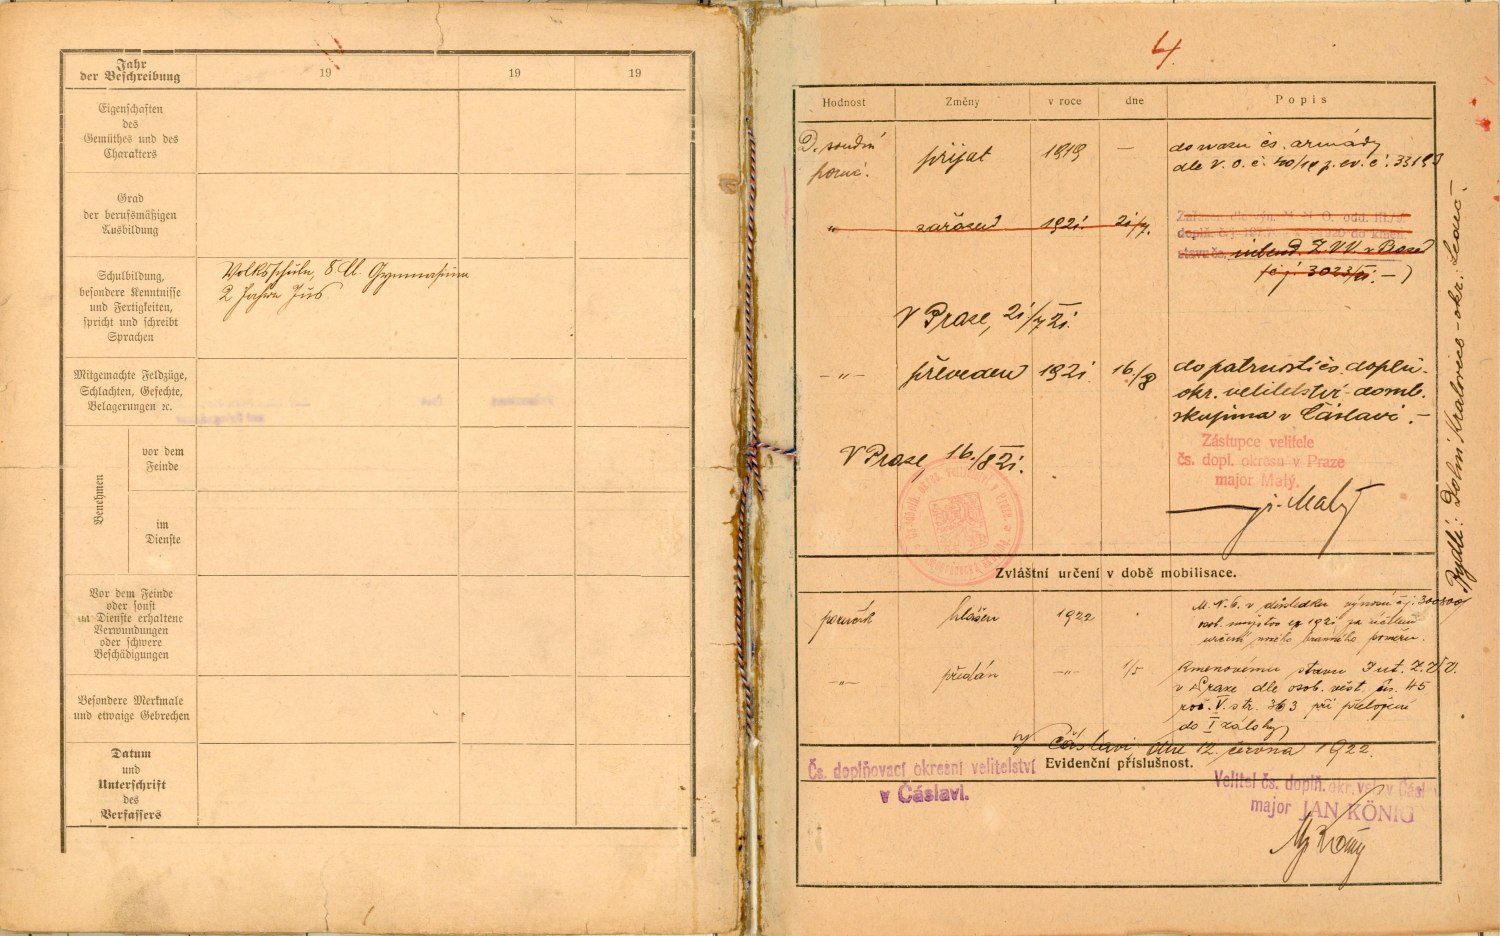 Jahr
der Beschreibung
19
19
19
Eigenschaften
des
Gemüthes und des
Charakters
Grad
der berufsmäßigen
Ausbildung
Schulbildung,
besondere Kenntnisse
und Fertigkeiten,
spricht und schreibt
Sprachen
Volksschule, 8 Cl. Gymnasium
2 Jahre Jus
Mitgemachte Feldzüge,
Schlachten, Gefechte,
Belagerungen ꝛc.
Benehmen
vor dem
Feinde
im
Dienste
Vor dem Feinde
oder sonst
im Dienste erhaltene
Verwundungen
oder schwere
Beschädigungen
Besondere Merkmale
und etwaige Gebrechen
Datum
und
Unterschrift
des
Verfassers
4.
Hodnost Změny v roce dne Popis
přijat 1919 — do svazu čs. armády
dle V. O. č.
" zařazen 1921 21/7.
stavu čs.
čj. 3023/
V Praze, 21/7 21.
—"— převeden 1921 16/8 do patrnosti čs. doplň.
okr. velitelství - domb.
skupina v Čáslavi. —
V Praze 16./8 21.
Zástupce velitele
čs. dopl. okresu v Praze
major Malý.
Malý
Zvláštní určení v době mobilisace.
poručík hlášen 1922 M. N. O. v důsledku výnosu čj.
určení nového branného poměru.
—"— předán —"— 1/5 Kmenovému stavu Int. Z.V.V.
v Praze dle osob. věst. čís. 45
roč. V. str. 363 při přeložení
do I zálohy
V Čáslavi, dne 12. června 1922.
Evidenční příslušnost.
Čs. doplňovací okresní velitelství
v Čáslavi.
Velitel čs. doplň. okr. vel. v Čásl
major JAN KÖNIG
Mjr König
Bydlí: Dolní Kralovice - okr. Ledeč.